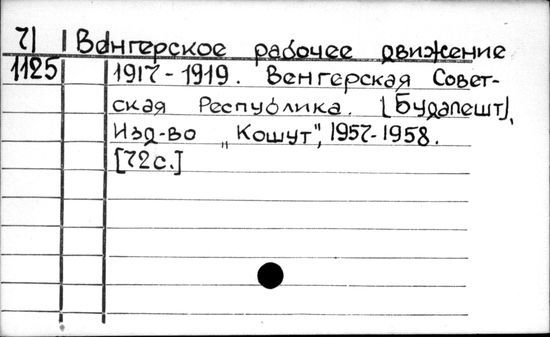 71 Венгерское рабочее движение
1125 1917-1919. Венгерская Совет-
ская Республика. [Будапешт],
Изд-во „Кошут", 1957-1958.
[72с.]